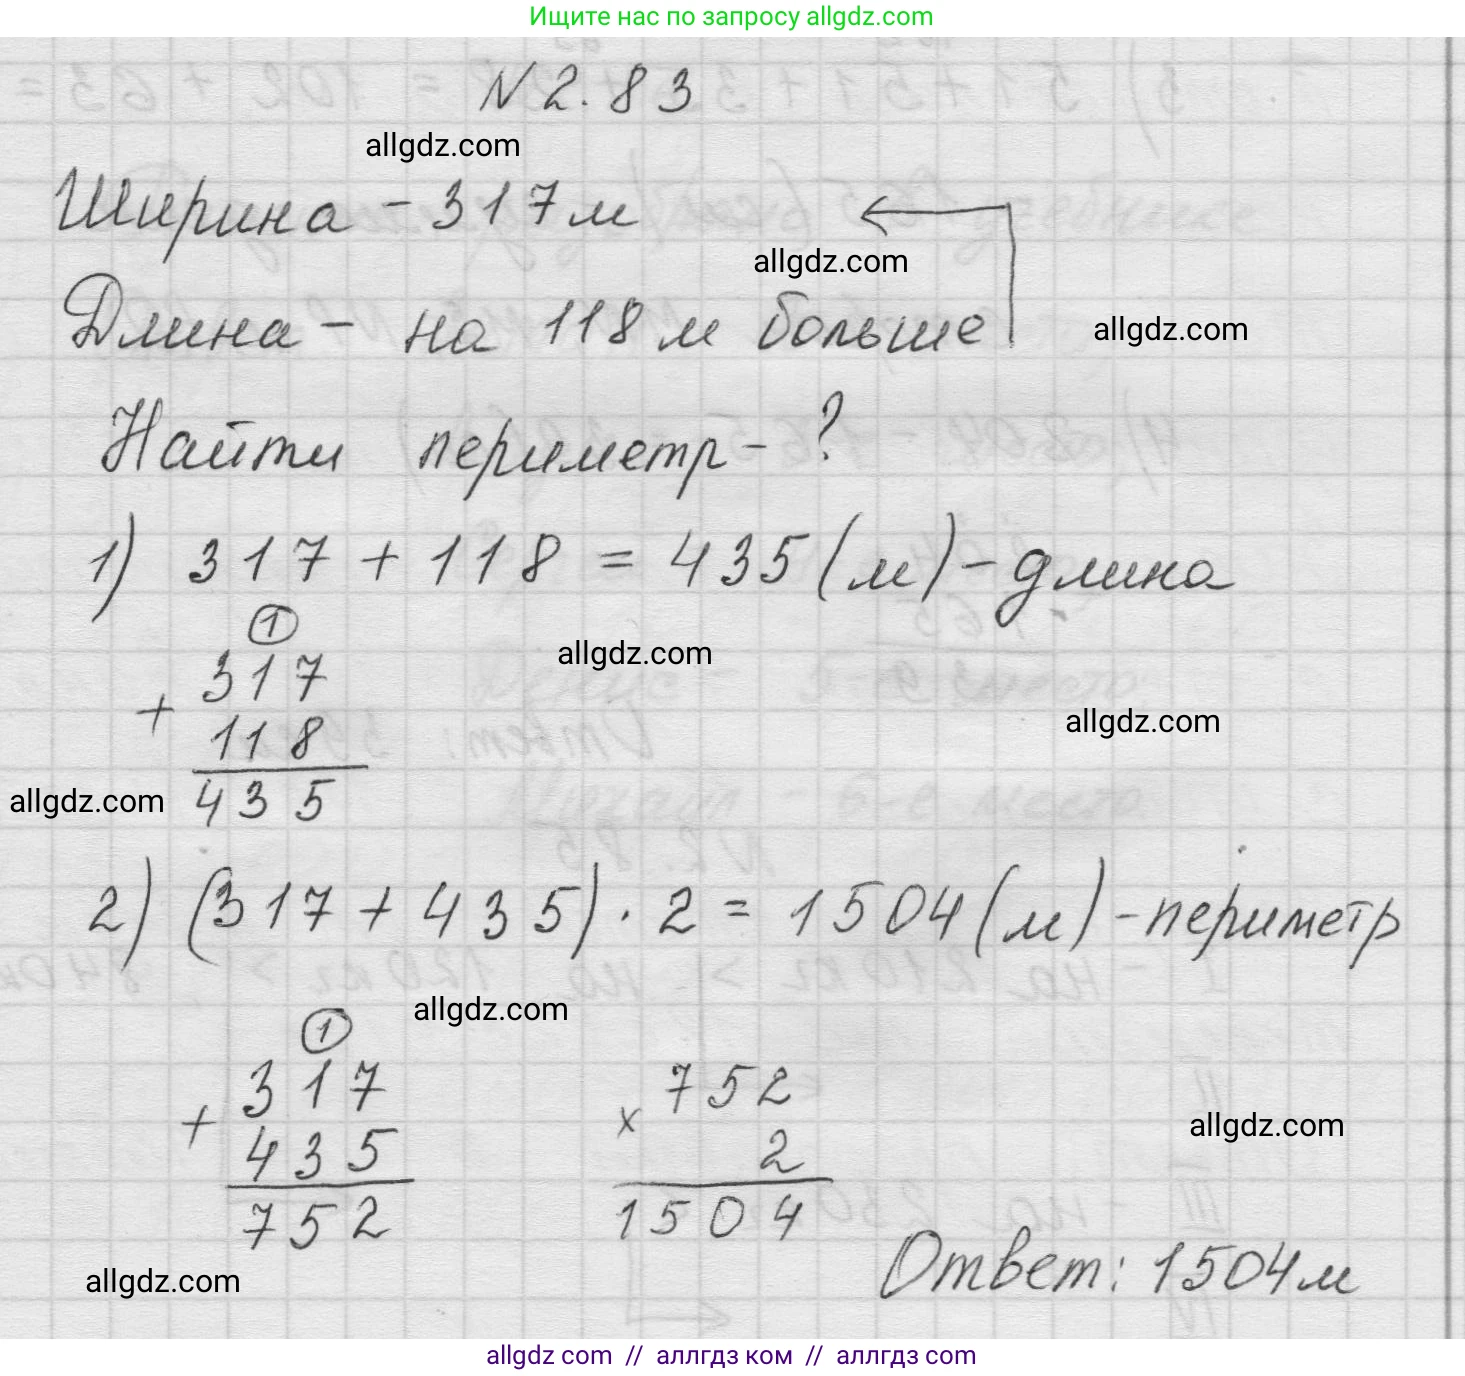 Ищите нас по запросу allgdz.com
N 2.83
allgdz.com
Ширина - 317 м
allgdz.com
Длина - на 118 м больше
allgdz.com
Найти периметр - ?
1) 317 + 118 = 435 (м) - длина
1
317
allgdz.com
+
118
allgdz.com
435
allgdz.com
2) (317 + 435) · 2 = 1504 (м) - периметр
allgdz.com
1
317 752
+ ×
435 2
allgdz.com
752 1504
Ответ: 1504 м
allgdz.com
allgdz com // аллгдз ком // аллгдз com